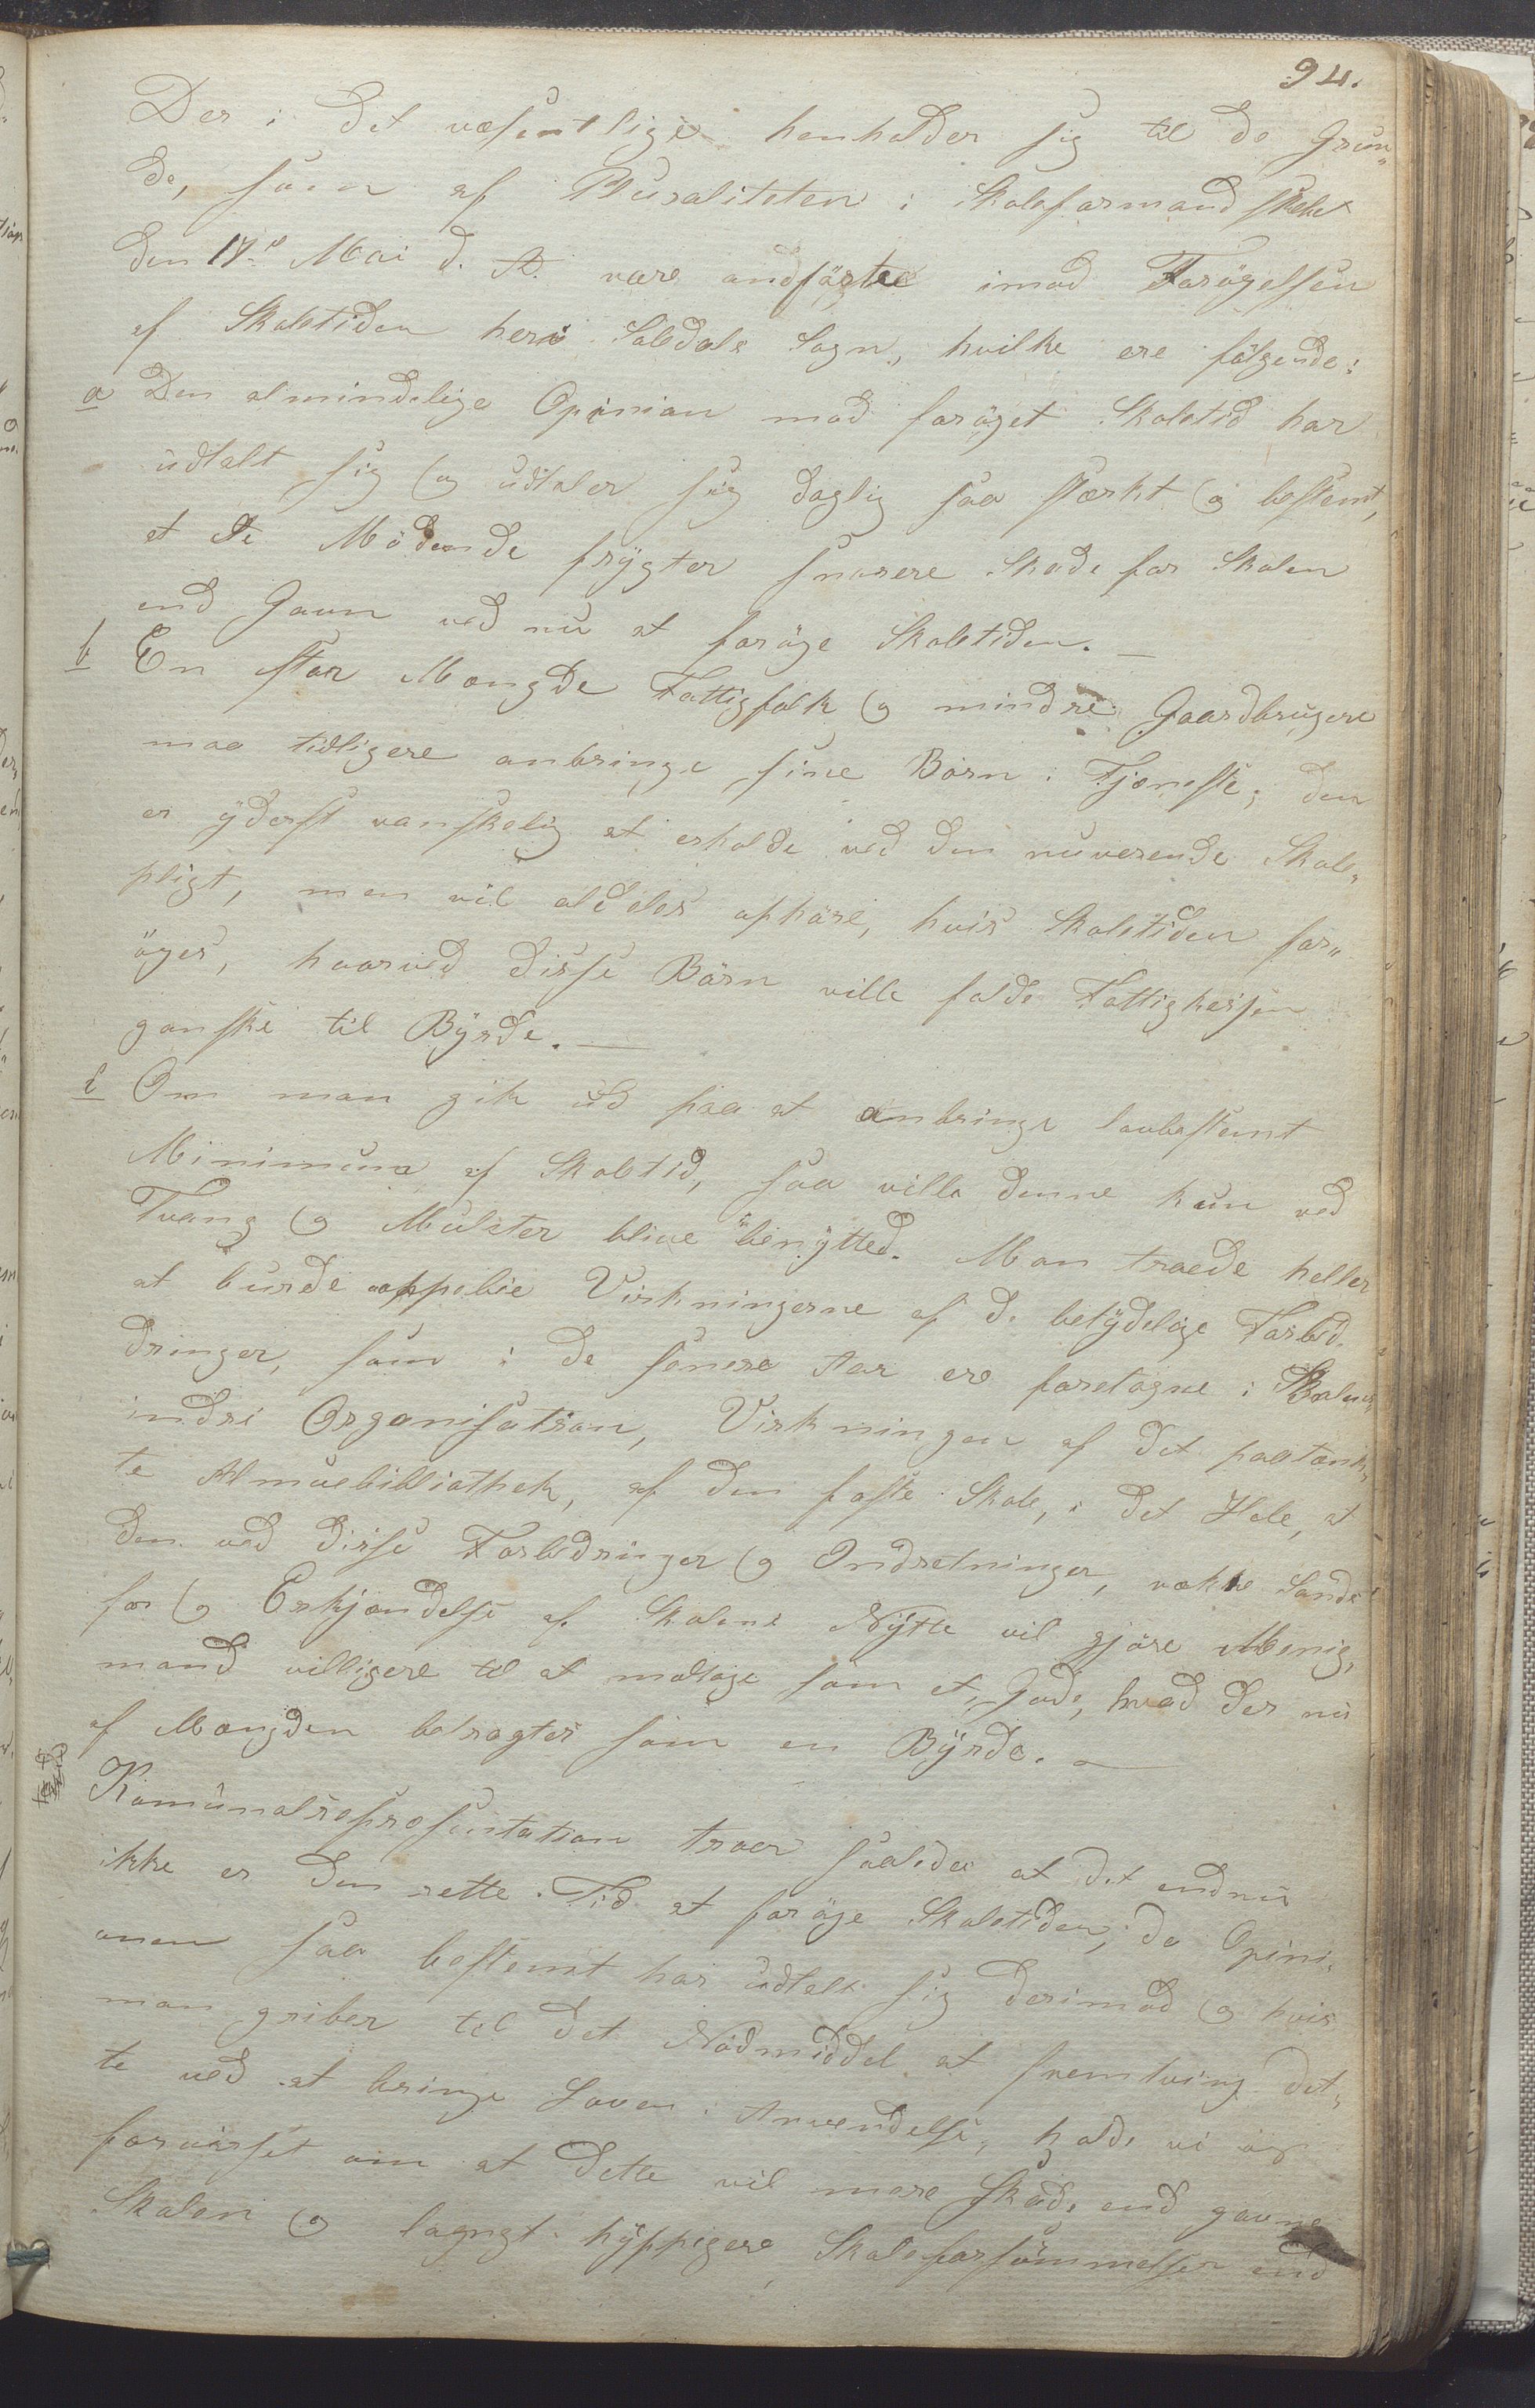 94.
Der i det væsentlige henholder sig til de Grun„
de, som af Pluraliteten i Skoleformandskabet
den 17de Mai d. A. vare andførte imod Forøgelsen
af Skoletiden her i Soledals Sogn, hvilke ere følgende:
a Den almindelige Opinion mod forøget Skoletid har
udtalt sig og udtaler sig daglig saa stærkt og bestemt,
at de Mødende frygter snarere Skade for Skolen
end Gavn ved nu at forøge Skoletiden. —
b En stor Mængde Fattigfolk og mindre Gaardbrugere
maa tidligere anbringe sine Børn i Tjeneste; den
er yderst vanskelig at erholde ved den nuværende Skole„
pligt, men vil aldeles ophøre, hvis Skoletiden for„
øges, hvorved disse Børn ville falde Fattigkassen
ganske til Byrde. —
c Om man gik ud paa at anbringe lovbestemt
Minimum af Skoletid, saa ville denne kun ved
Tvang og Mulcter blive benytted. Man troede heller
at burde oppebie Virkningerne af de betydelige Forbed„
dringer, som i de senere Aar ere foretagne i Skolens
indre Organisation, Virkningen af det paatænk„
te Almuebibliothek, af den faste Skole, i det Hele, at
den ved disse Forbedringer og Indretninger, vakte Sands
for og Erkjendelse af Skolens Nytte vil gjøre Menig„
mand villigere til at modtage som et Gode, hvad der nu
af Mængden betragtes som en Byrde. —
Komunalrepresentation troer saaledes at det endnu
ikke er den rette Tid at forøge Skoletiden, da Opini„
onen saa bestemt har udtalt sig derimod og hvis
man griber til det Nødmiddel at fremtving det„
te ved at bringe Loven i Anvendelse, hold. vi os
forvisset om at dette vil mere skade end gavne
Skolen og langt hyppigere Skoleforsømmelser end